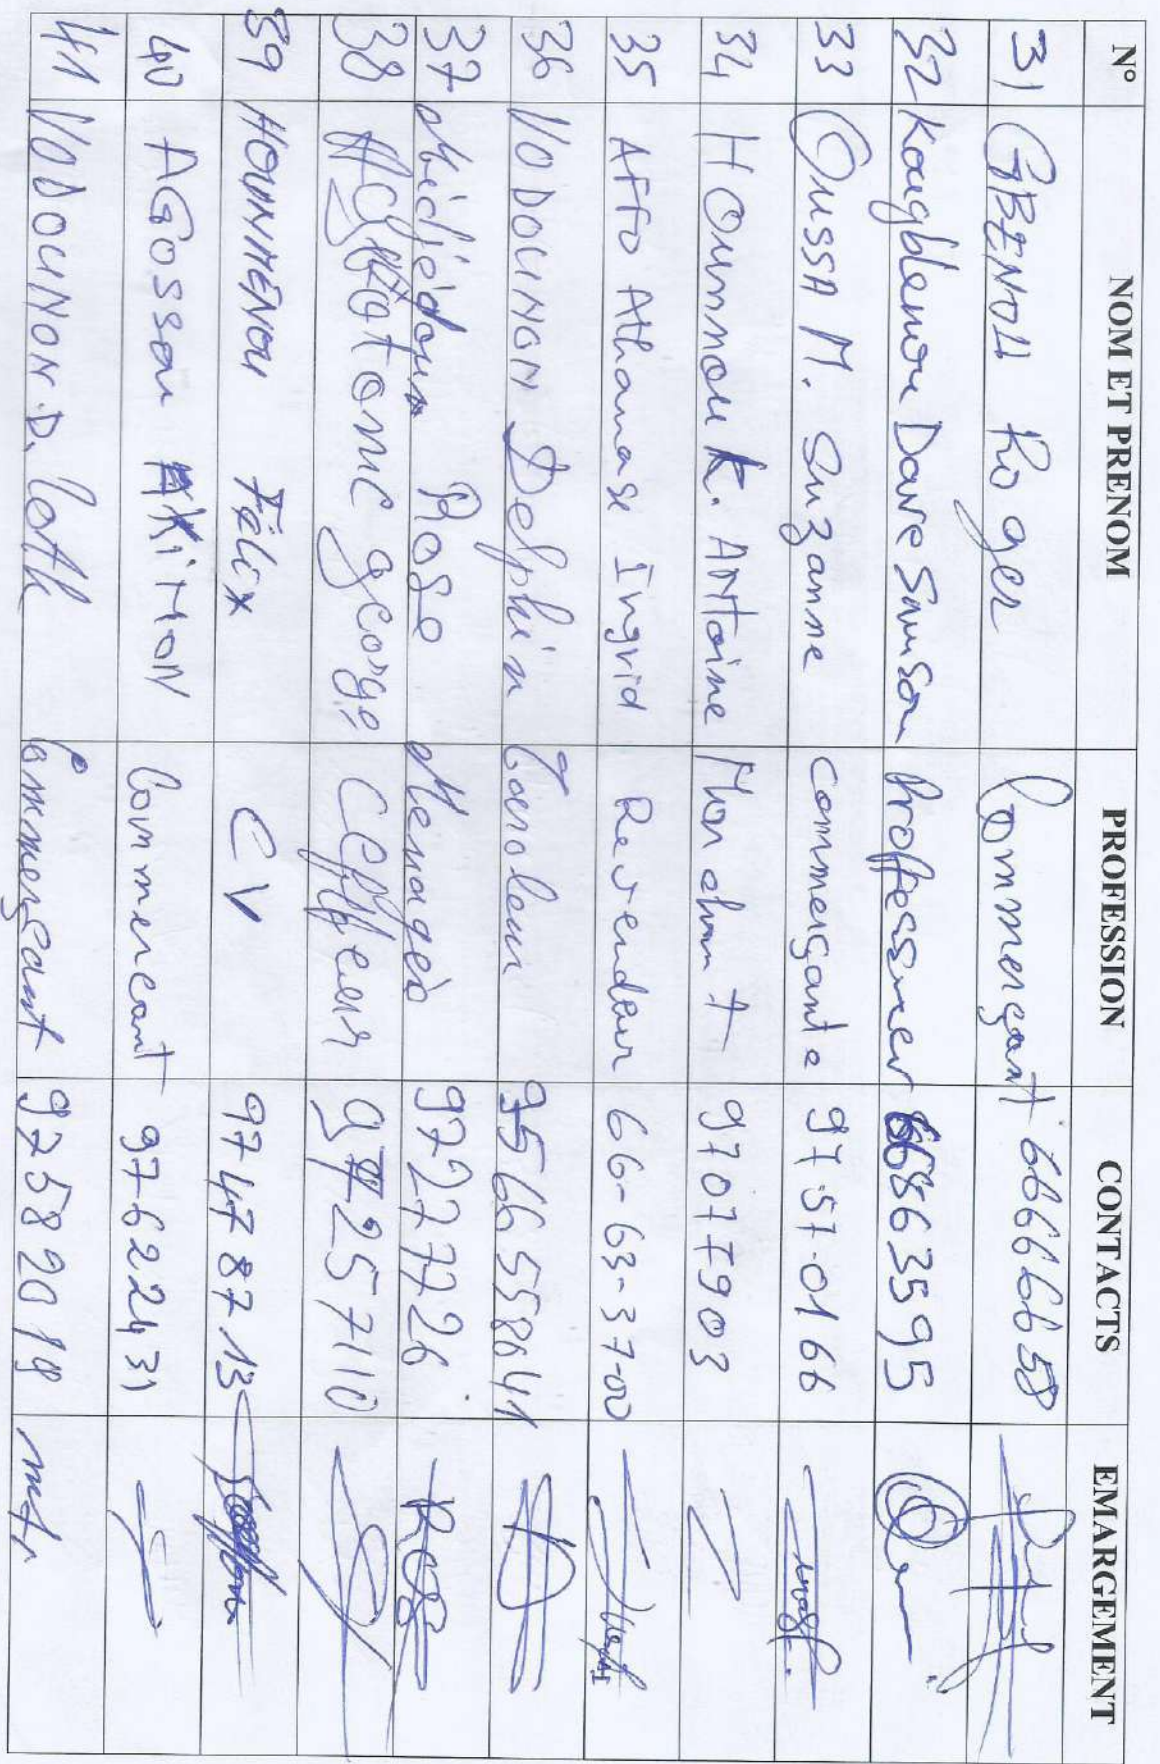 N° NOM ET PRENOM PROFESSION CONTACTS EMARGEMENT
31 GBENOU Roger Commerçant 66666658
32 Kougblenou Dave Samson Proffesseur 66863595
33 OUSSA M. Suzanne commerçante 97-57-0166
34 HOunnou K. ANtoine Marchant 97077903
35 AFFO Athanase Ingrid Revendeur 66-63-37-00
36 VODOUNON Delphin Caroleur 95665586 41
37 Mèdjèdoun Rose Menagèe 97277726
38 george Ceffeur 97257110
39 HOUNMENOU Félix CV 97478713
40 AGossou AKiMON Commercant 97622431
41 VODOUNON.D. loth Commerçant 97582019